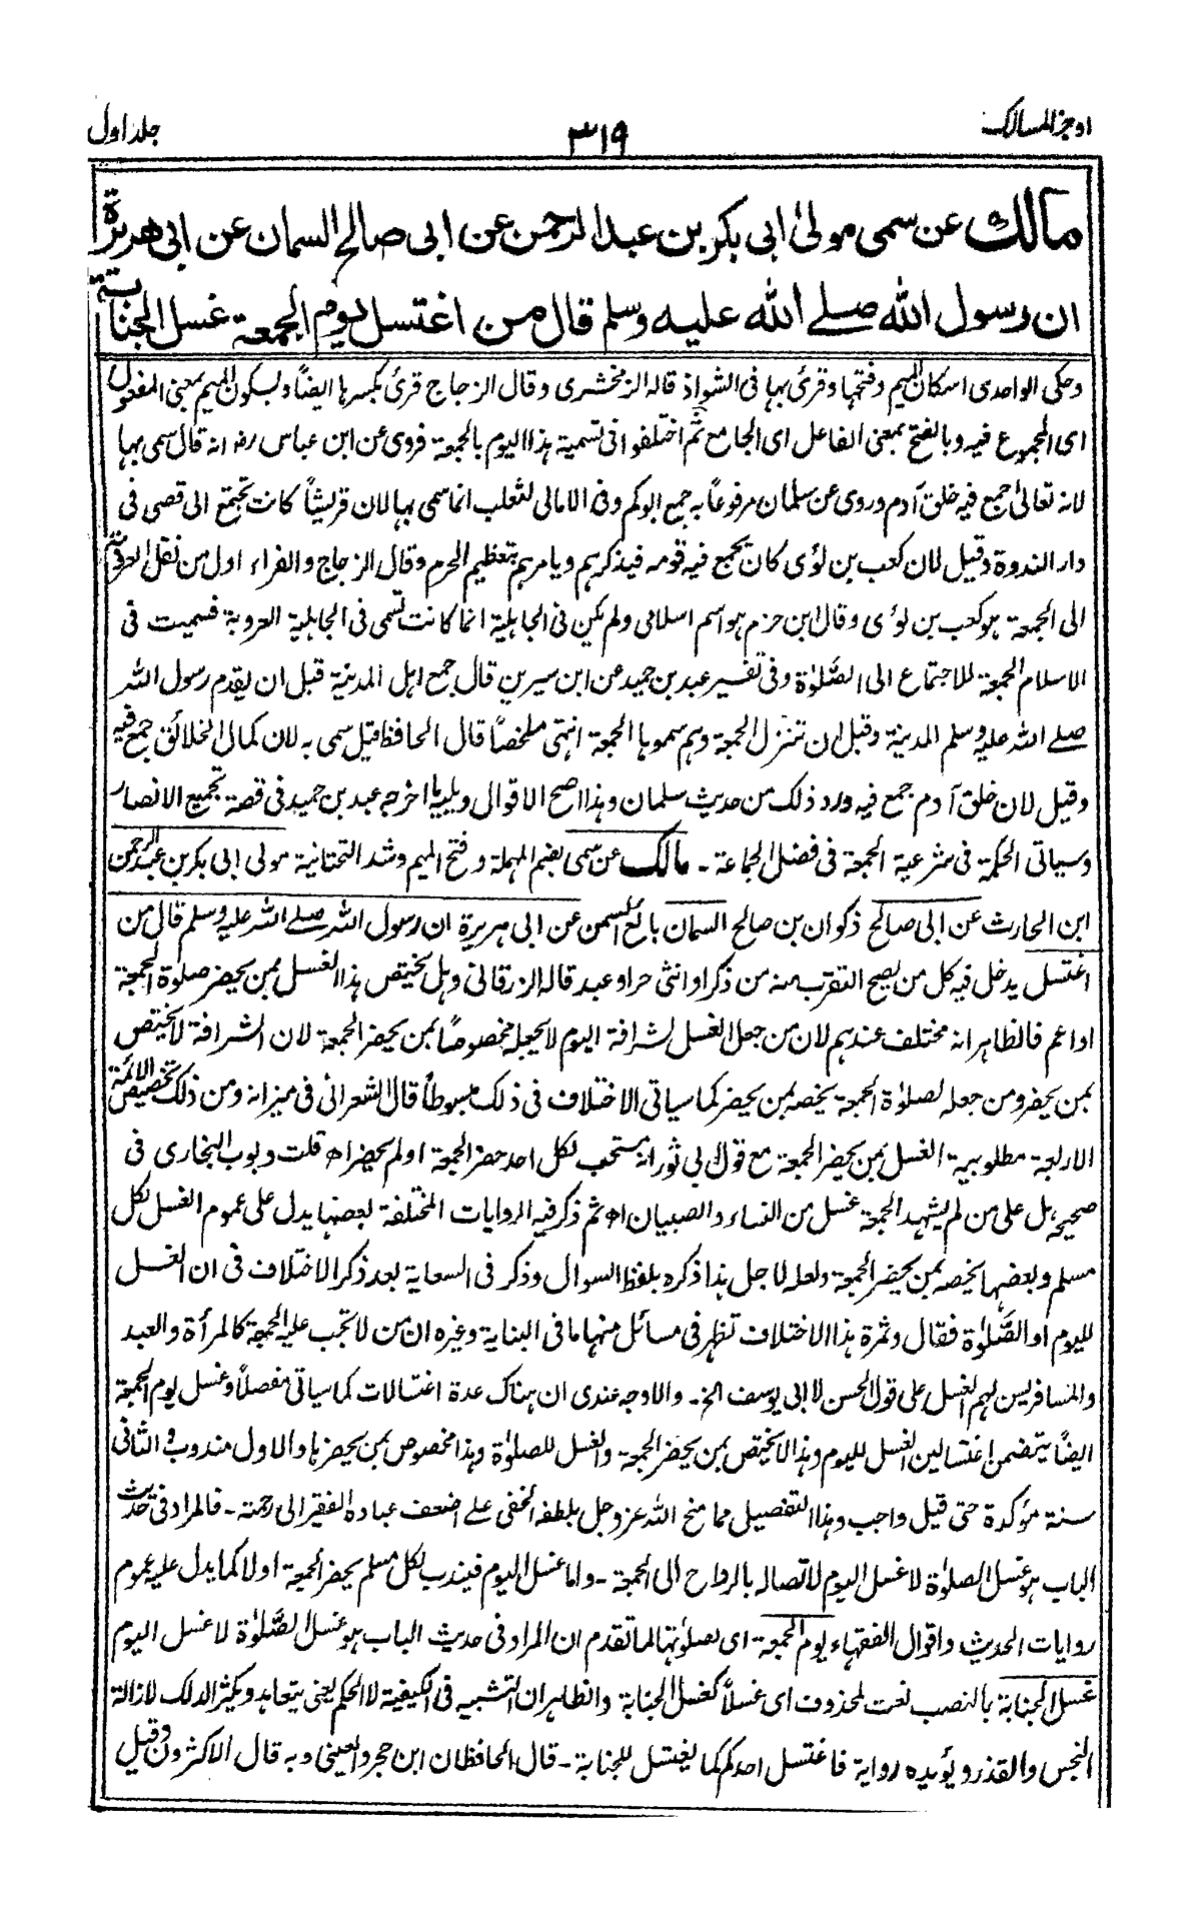 اوجز المسالك
٣١٩
جلد اول
مالك عن سمى مولىٰ ابى بكر بن عبد الرحمن عن ابى صالح السمان عن ابى هريرة
ان رسول الله صلے الله عليه وسلم قال من اغتسل يوم الجمعة غسل الجنابة
وحكى الواحدى اسكان الميم وفتحها وقرئ بها فى الشواذ قاله الزمخشرى وقال الزجاج قرئ بكسرها ايضاً ولسكون الميم بمعنى المفعول
اى المجموع فيه وبالفتح بمعنى الفاعل اى الجامع ثم اختلفوا فى تسمية هذا اليوم بالجمعة فروى عن ابن عباس رضـ انه قال سمى بها
لانه تعالىٰ جمع فيه خلق آدم وروى عن سلمان مرفوعاً به جمع ابوكم وفى الامالى لثعلب انما سمى بها لان قريشاً كانت تجتمع الى قصى فى
دار الندوة وقيل لان كعب بن لوٴى كان يجمع فيه قومه فيذكرهم ويامرهم بتعظيم الحرم وقال الزجاج والفراء اول من نقل العروبة
الى الجمعة هو كعب بن لوٴى وقال ابن حزم هو اسم اسلامى ولم يكن فى الجاهلية انما كانت تسمى فى الجاهلية العروبة فسميت فى
الاسلام الجمعة للاجتماع الى الصَّلوٰة وفى تفسير عبد بن حميد عن ابن سيرين قال جمع اهل المدينة قبل ان يقدم رسول الله
صلے الله عليه وسلم المدينة وقبل ان تنزل الجمعة وهم سموها الجمعة انتهى ملخصاً قال الحافظ قيل سمى به لان كمال الخلائق جمع فيه
وقيل لان خلق آدم جمع فيه ورد ذلك من حديث سلمان وهذا اصح الاقوال ويليه ما اخرجه عبد بن حميد فى قصة تجميع الانصار
وسياتى الحكمة فى شرعية الجمعة فى فضل الجماعة ـ مالك عن سمى بضم المهملة وفتح الميم وشد التحتانية مولى ابى بكر بن عبد الرحمن
ابن الحارث عن ابى صالح ذكوان بن صالح السمان بائع السمن عن ابى هريرة ان رسول الله صلے الله عليه وسلم قال من
اغتسل يدخل فيه كل من يصح التقرب منه من ذكر او انثى حر او عبد قاله الزرقانى وهل يختص هذا الغسل بمن يحضر صلوٰة الجمعة
او اعم فالظاهر انه مختلف عندهم لان من جعل الغسل لشرافة اليوم لا يجعله مخصوصاً بمن يحضر الجمعة لان الشرافة لا يختص
بمن يحضر ومن جعله لصلوٰة الجمعة يخصه بمن يحضر كما سياتى الاختلاف فى ذلك مبسوطاً قال الشعرانى فى ميزانه ومن ذلك تخصيص الائمة
الاربعة مطلوبية الغسل بمن يحضر الجمعة مع قول ابى ثور انه مستحب لكل احد حضر الجمعة او لم يحضر اهـ قلت وبوب البخارى فى
صحيحه هل على من لم يشهد الجمعة غسل من النساء والصبيان اهـ ثم ذكر فيه الروايات المختلفة بعضها يدل على عموم الغسل لكل
مسلم وبعضها يخصه بمن يحضر الجمعة ولعله لاجل هذا ذكره بلفظ السوال وذكر فى السعاية بعد ذكر الاختلاف فى ان الغسل
لليوم او الصَّلوٰة فقال وثمرة هذا الاختلاف تظهر فى مسائل منها ما فى البناية وغيره ان من لا تجب عليه الجمعة كالمرأة والعبد
والمسافر يسن لهم الغسل على قول الحسن لا ابى يوسف الخ ـ والاوجه عندى ان هناك عدة اغتسالات كما سياتى مفصلاً وغسل يوم الجمعة
ايضاً يتضمن اغتسالين الغسل لليوم وهذا لا يختص بمن يحضر الجمعة والغسل للصلوٰة وهذا مخصوص بمن يحضرها والاول مندوب والثانى
سنة مؤكدة حتى قيل واجب وهذا التفصيل مما منح الله عز وجل بلطفه الخفى علے اضعف عباده الفقير الى رحمته ـ فالمراد فى حديث
الباب هو غسل الصلوٰة لا غسل اليوم لاتصاله بالرواح الى الجمعة ـ واما غسل اليوم فيندب لكل مسلم يحضر الجمعة او لا كما يدل عليه عموم
روايات الحديث واقوال الفقهاء يوم الجمعة اى لصلوٰتها لما تقدم ان المراد فى حديث الباب هو غسل الصَّلوٰة لا غسل اليوم
غسل الجنابة بالنصب نعت لمحذوف اى غسلاً كغسل الجنابة والظاهر ان التشبيه فى الكيفية لا الحكم يعنى يتعاهد ويكثر الدلك لازالة
النجس والقذر ويؤيده رواية فاغتسل احدكم كما يغتسل للجنابة ـ قال الحافظان ابن حجر والعينى وبه قال الاكثرون وقيل